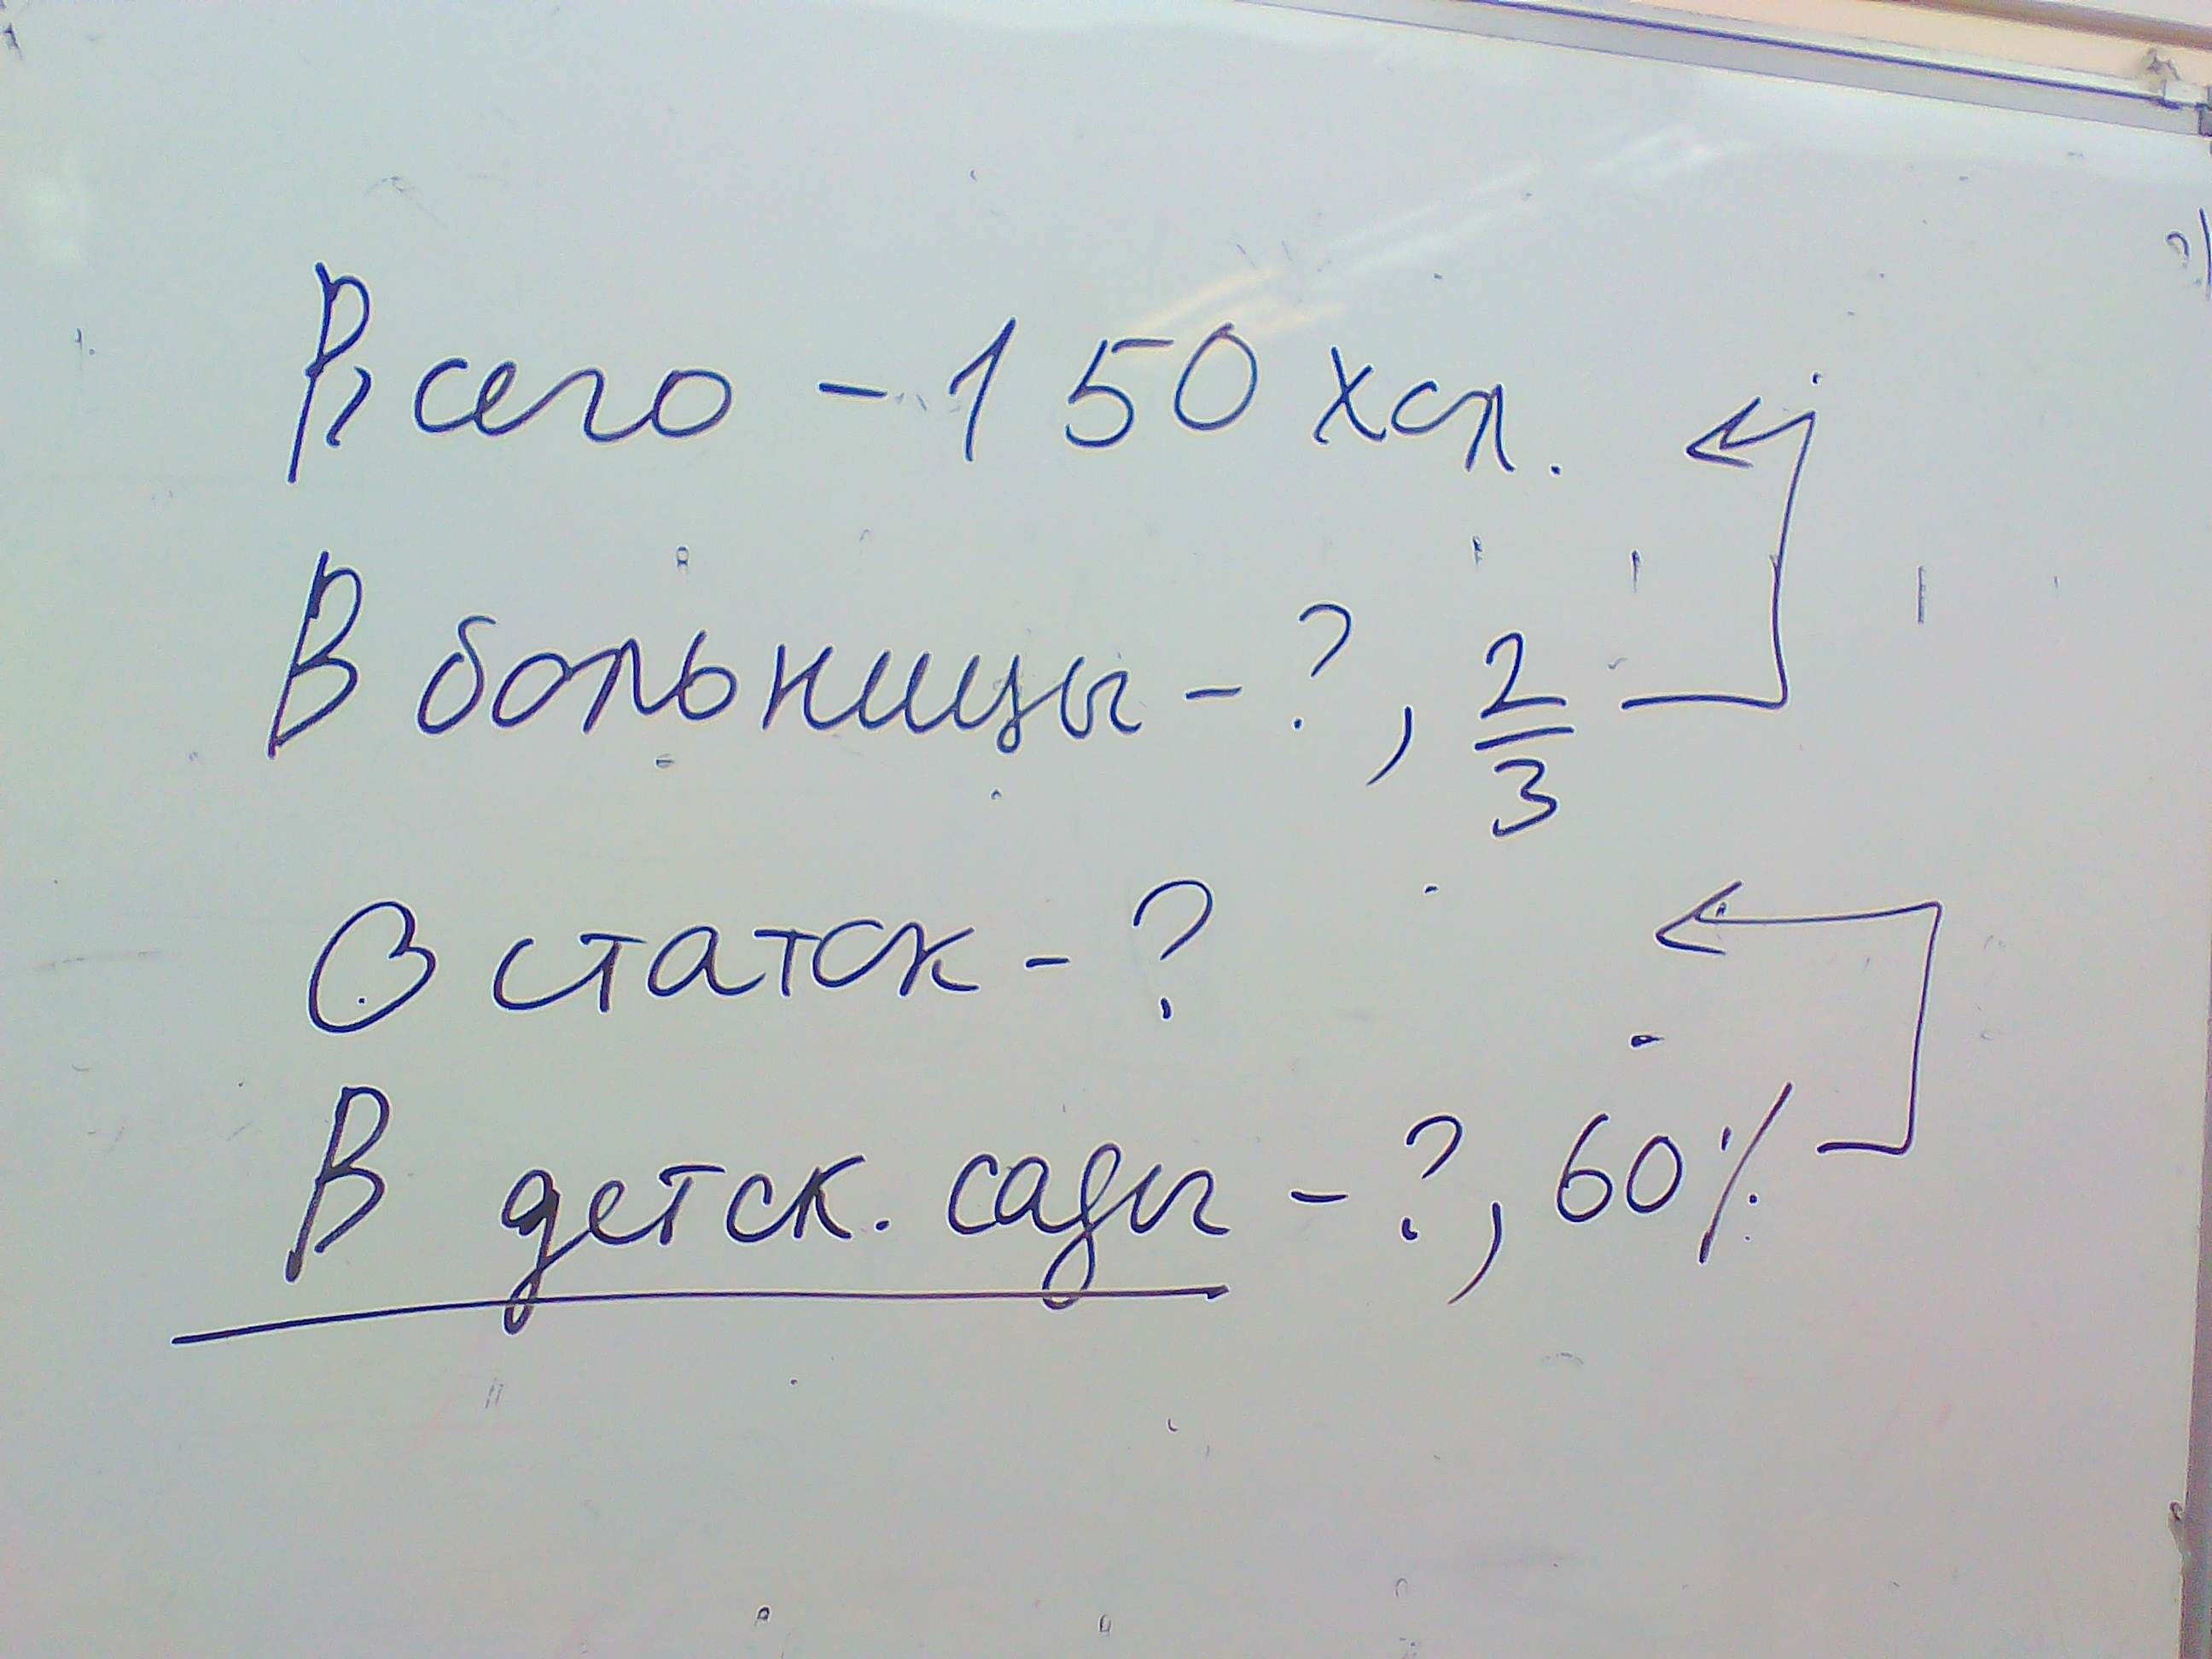 Всего - 150 хол.
В больницы - ?, 2/3
Остаток - ?
В детск. сады - ?, 60%